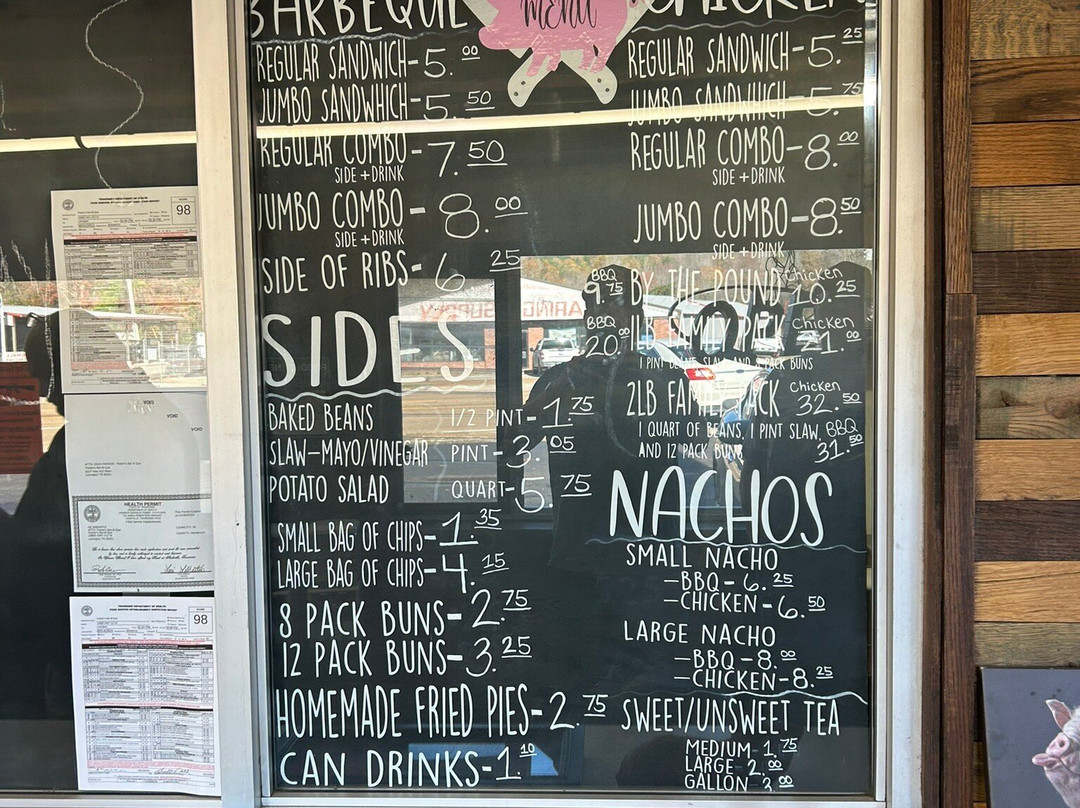 BARBEQUE
MENU
CHICKEN
REGULAR SANDWICH-5.00
JUMBO SANDWHICH-5.50
REGULAR COMBO-7.50
SIDE + DRINK
JUMBO COMBO-8.00
SIDE + DRINK
SIDE OF RIBS-6.25
REGULAR SANDWICH-5.25
JUMBO SANDWHICH-5.75
REGULAR COMBO-8.00
SIDE + DRINK
JUMBO COMBO-8.50
SIDE + DRINK
BBQ 9.75 BY THE POUND Chicken 10.25
BBQ 20.00 1LB FAMILY PACK Chicken 21.00
1 PINT BEANS, SLAW AND 8 PACK BUNS
2LB FAMILY PACK Chicken 32.50
1 QUART OF BEANS, 1 PINT SLAW, BBQ
AND 12 PACK BUNS 31.50
SIDES
BAKED BEANS 1/2 PINT-1.75
SLAW-MAYO/VINEGAR PINT-3.05
POTATO SALAD QUART-5.75
SMALL BAG OF CHIPS-1.35
LARGE BAG OF CHIPS-4.15
8 PACK BUNS-2.75
12 PACK BUNS-3.25
HOMEMADE FRIED PIES-2.75
CAN DRINKS-1.10
NACHOS
SMALL NACHO
-BBQ-6.25
-CHICKEN-6.50
LARGE NACHO
-BBQ-8.00
-CHICKEN-8.25
SWEET/UNSWEET TEA
MEDIUM-1.75
LARGE-2.00
GALLON 3.00
98
VOID
VOID
HEALTH PERMIT
98